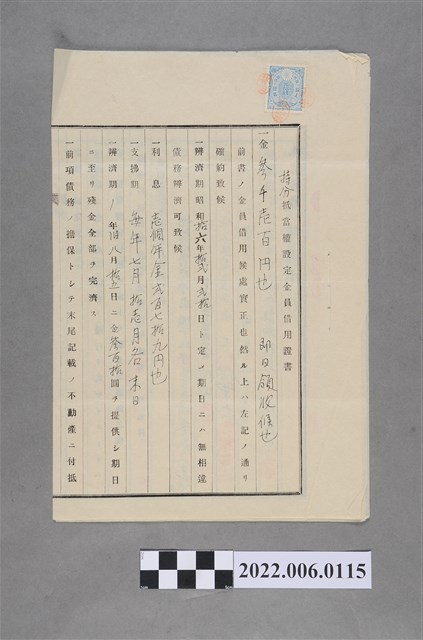 持分抵當權設定金員借用證書
一金參千壱百円也 即日領收候也
前書ノ金員借用候處實正也然ル上ハ左記ノ通リ
確約致候
一辨濟期昭和拾六年拾弐月弐拾日ト定メ期日ニハ無相違
債務辨濟可致候
一利息 壱個年金弐百七拾九円也
一支拂期 每年七月拾壱月各末日
一辨濟期ノ年旧八月拾五日ニ金參百拾圓ヲ提供シ期日
ニ至リ殘金全部ヲ完濟ス
一前項債務ノ擔保トシテ末尾記載ノ不動產ニ付抵
2022.006.0115